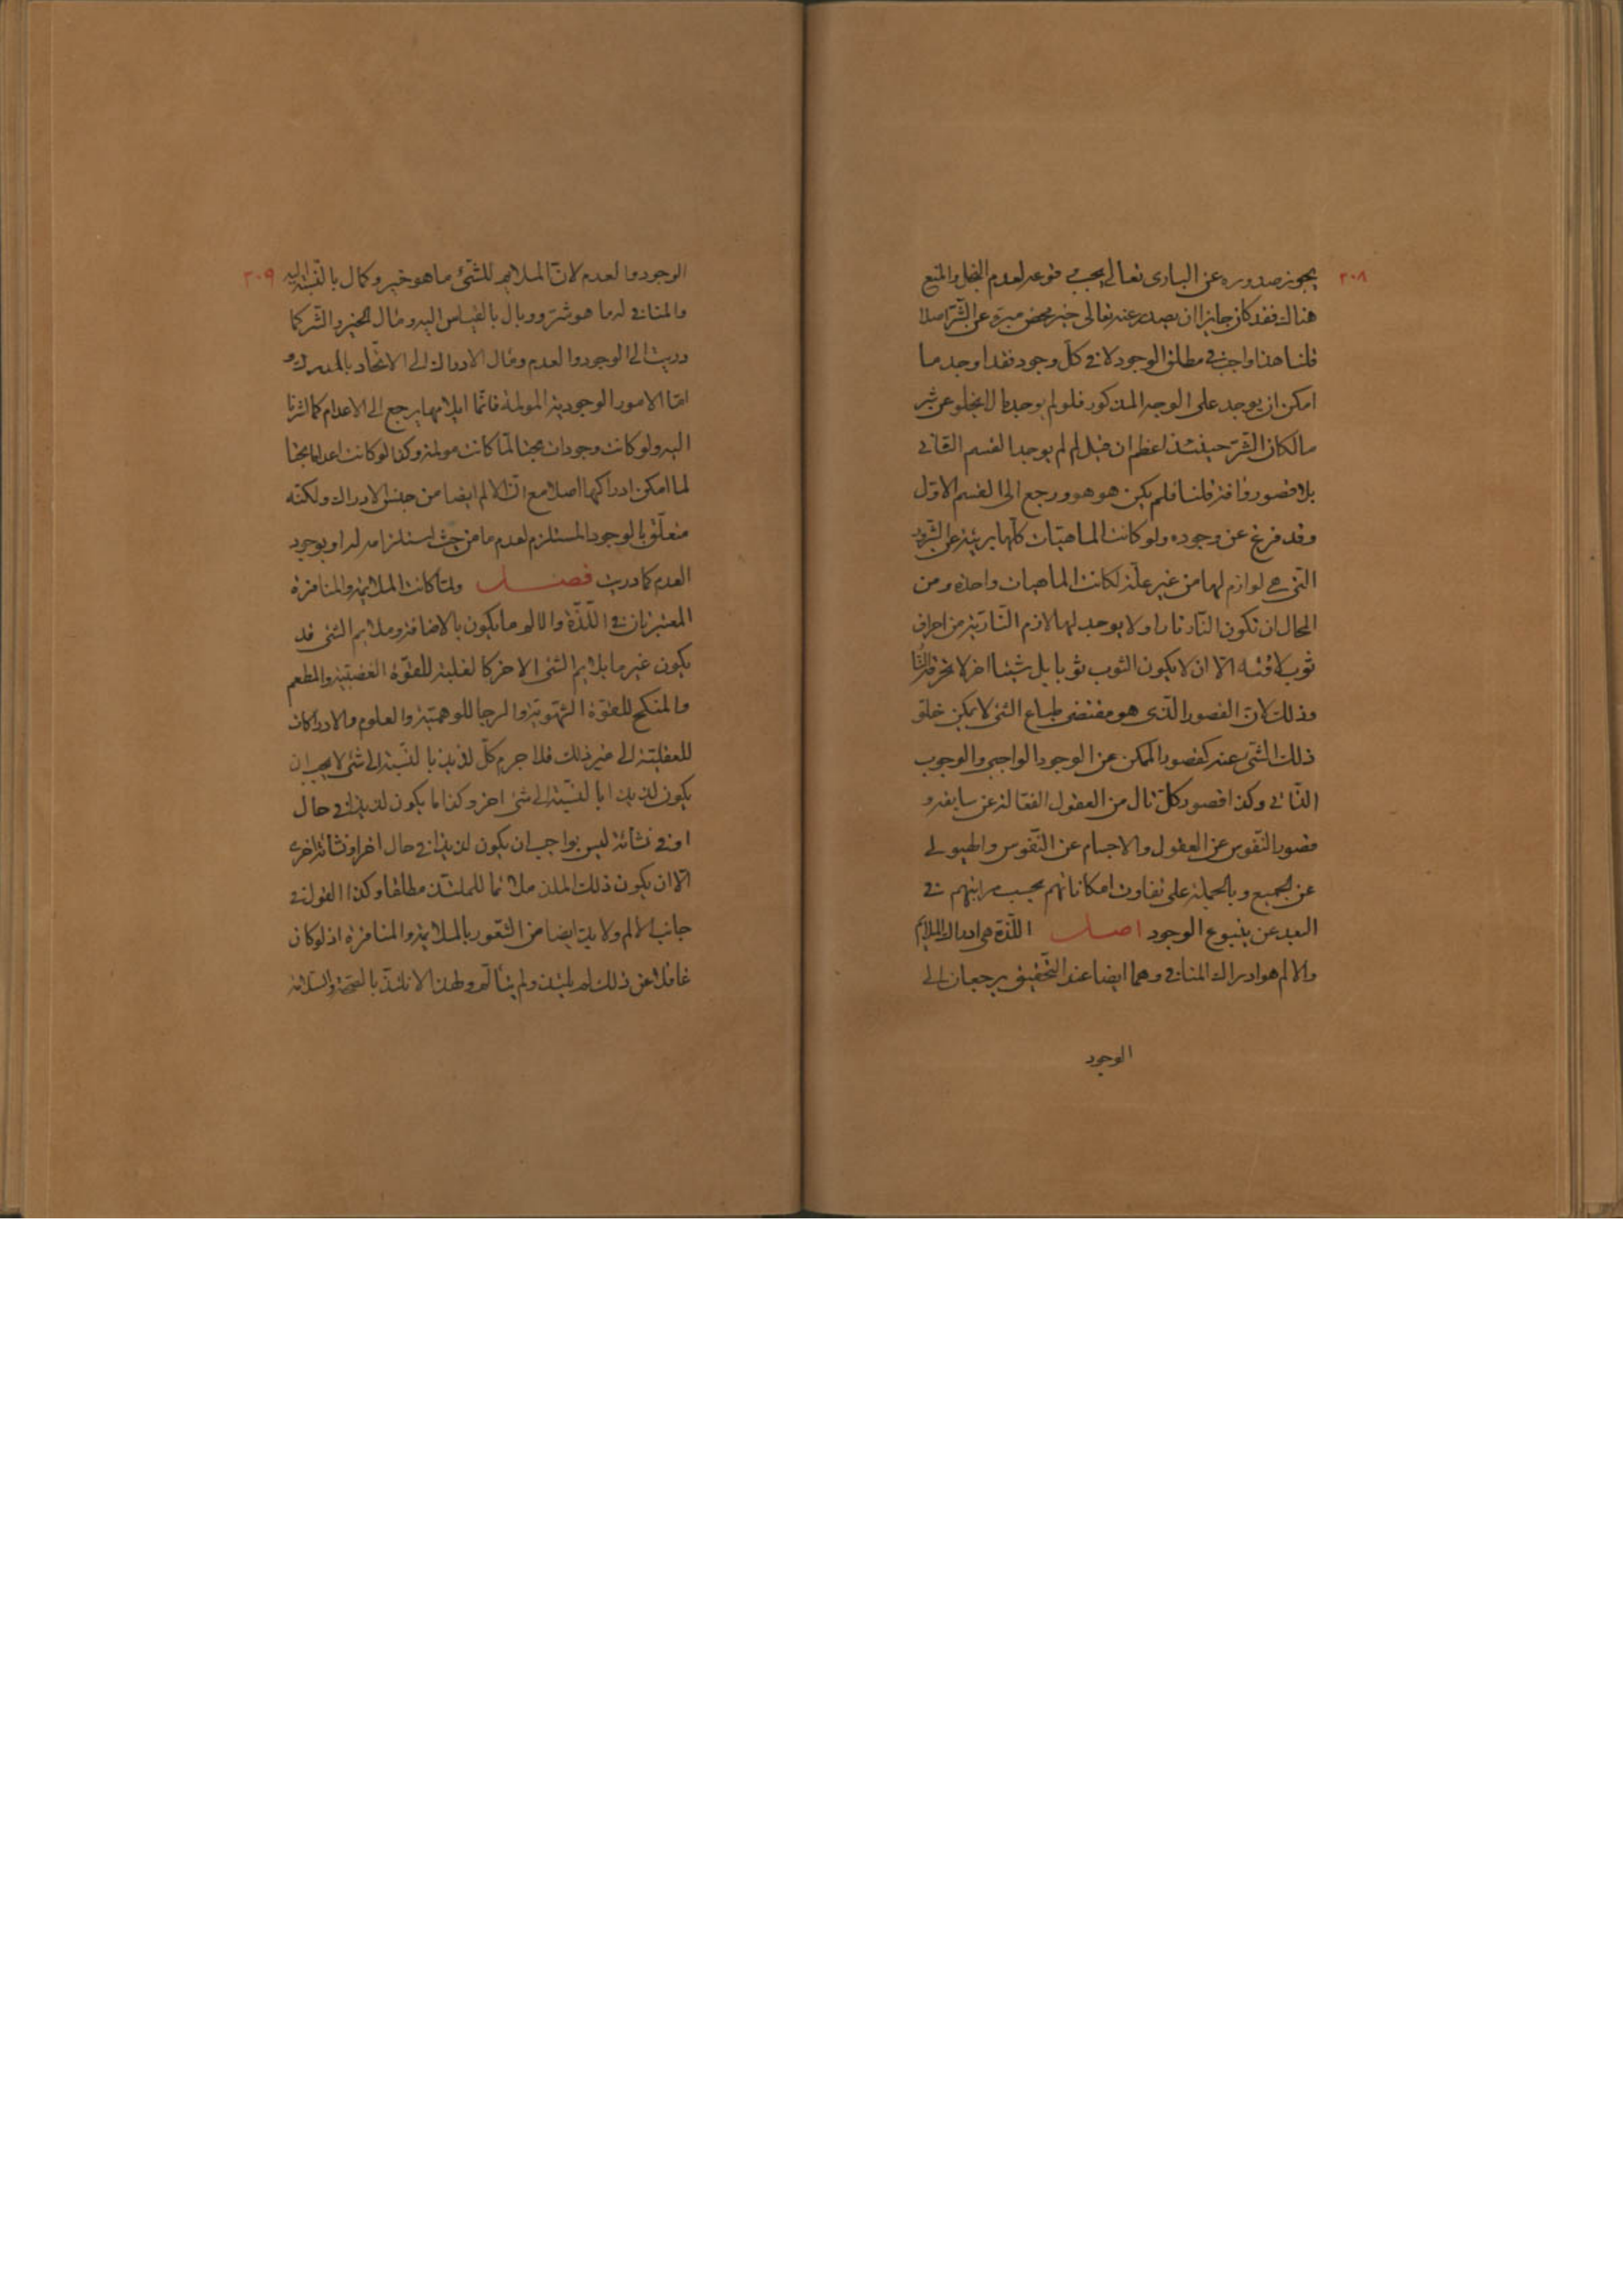 ٣٠٨
يجوز صدوره عن البارى تعالى يجب وقوعه لعدم البخل والمنع
هناك فقد كان جايزا ان يصدر عنه تعالى خير محض مبرء عن الشّر اصلا
قلنا هذا واجب فى مطلق الوجود لا فى كلّ وجود فقد اوجد ما
امكن ان يوجد على الوجه المذكور فلو لم يوجد ما لا يخلو عن شر
ما لكان الشّر حينئذ اعظم ان قيل لم لم يوجد القسم الثانى
بلا قصور وافة قلنا فلم يكن هو هو ورجع الى القسم الاوّل
وقد فرغ عن وجوده ولو كانت الماهيّات كلّها بريئة عن الشّرور
التّى هى لوازم لها من غير علّة لكانت الماهيات واحدة ومن
المحال ان تكون النّار نارا ولا يوجد لها لازم النّاريّة من احراق
ثوب لاقته الّا ان لا يكون الثوب ثوبا بل شيئا اخر لا تحرقه النّار
وذلك لانّ القصور الذّى هو مقتضى طباع الشئ لا يمكن خلو
ذلك الشّئ عنه كقصور الممكن عن الوجود الواجبى والوجوب
الذّاتى وكذا قصور كلّ تال من العقول الفعّالة عن سابقه و
قصور النّفوس عن العقول والاجسام عن النّفوس والهيولى
عن الجميع وبالجملة على تفاوت امكاناتهم بحسب مراتبهم فى
البعد عن ينبوع الوجود اصل اللّذة هى ادراك الملايم
والالم هو ادراك المنافى وهما ايضا عند التّحقيق يرجعان الى
الوجود
٣٠٩
الوجود والعدم لانّ الملايم للشّئ ما هو خير وكمال بالنّسبة اليه
والمنافى له ما هو شرّ ووبال بالقياس اليه ومال الخير والشّر كما
دريت الى الوجود والعدم ومال الادراك الى الاتّحاد بالمدرك و
امّا الامور الوجودية المولمة فانّما ايلامها يرجع الى الاعدام كما اشرنا
اليه ولو كانت وجودات بحتا لمّا كانت مولمة وكذا لو كانت اعداما بحتا
لما امكن ادراكها اصلا مع انّ الالم ايضا من جنس الادراك ولكنّه
متعلّق بالوجود المستلزم لعدم ما من حيث استلزامه له او بوجود
العدم كما دريت فصل ولمّا كانت الملايمة والمنافرة
المعتبرتان فى اللّذّة والالم ما يكون بالاضافة وملايم الشئ قد
يكون غير ما يلايم الشئ الاخر كالغلبة للقوّة الغضبيّة والمطعم
والمنكح للقوّة الشّهويّة والرجا للوهميّة والعلوم والادراكات
للعقليّة الى غير ذلك فلا جرم كلّ لذيذ بالنّسبة الى شئ لا يجب ان
يكون لذيذا بالنّسبة الى شئ اخر وكذا ما يكون لذيذا فى حال
او فى نشأة ليس بواجب ان يكون لذيذا فى حال اخر او نشأة اخرى
الّا ان يكون ذلك الملذ ملائما للملتذّ مطلقا وكذا القول فى
جانب الالم ولا بدّ ايضا من الشّعور بالملايمة والمنافرة اذ لو كان
غافلا عن ذلك لم يلتذ ولم يتألّم ولهذا لا نلتذّ بالصّحة والسّلامة